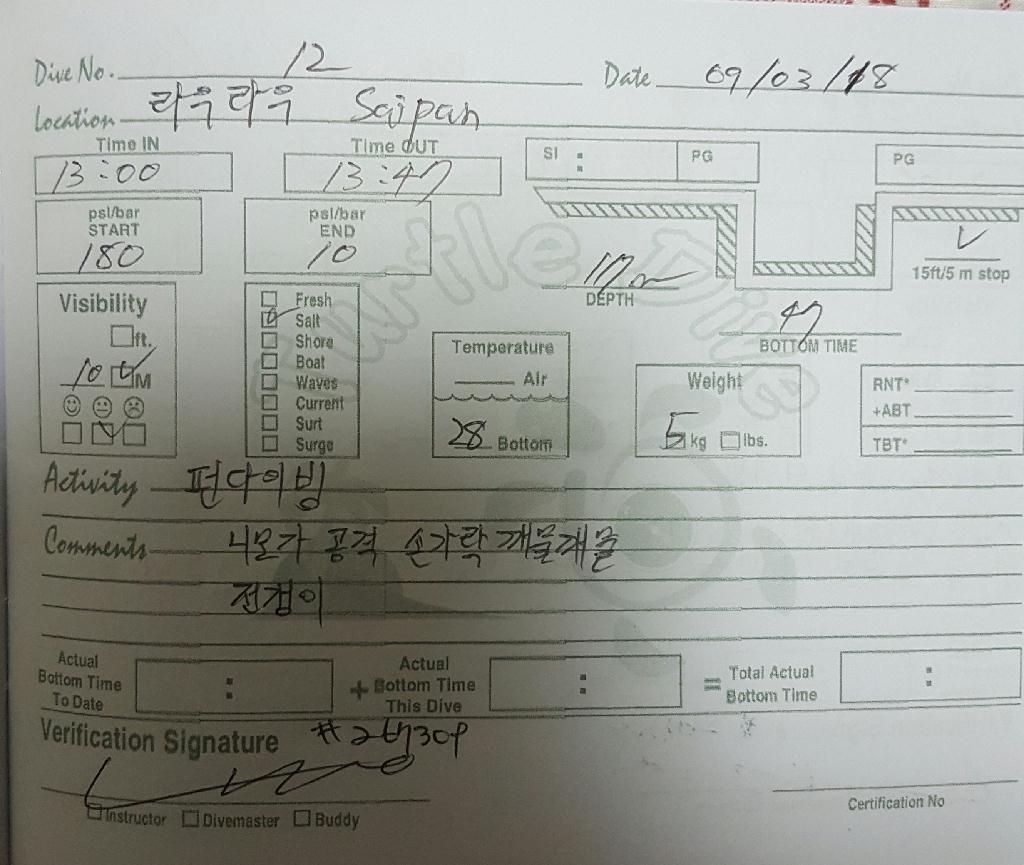 Dive No. 12 Date 09/03/18
Location 라우라우 Saipan
Time IN Time OUT SI : PG PG
13:00 13:47
psi/bar START 180 psi/bar END 10
17m DEPTH 15ft/5 m stop
47 BOTTOM TIME
Visibility
ft.
10 M
Fresh
Salt
Shore
Boat
Waves
Current
Surf
Surge
Temperature
Air
28 Bottom
Weight
5 kg lbs.
RNT*
+ABT
TBT*
Turtle Dive
Activity 펀다이빙
Comments 니모가 공격 손가락 깨물깨물
전갱이
Actual Bottom Time To Date : + Actual Bottom Time This Dive : = Total Actual Bottom Time :
Verification Signature
Instructor Divemaster Buddy
Certification No